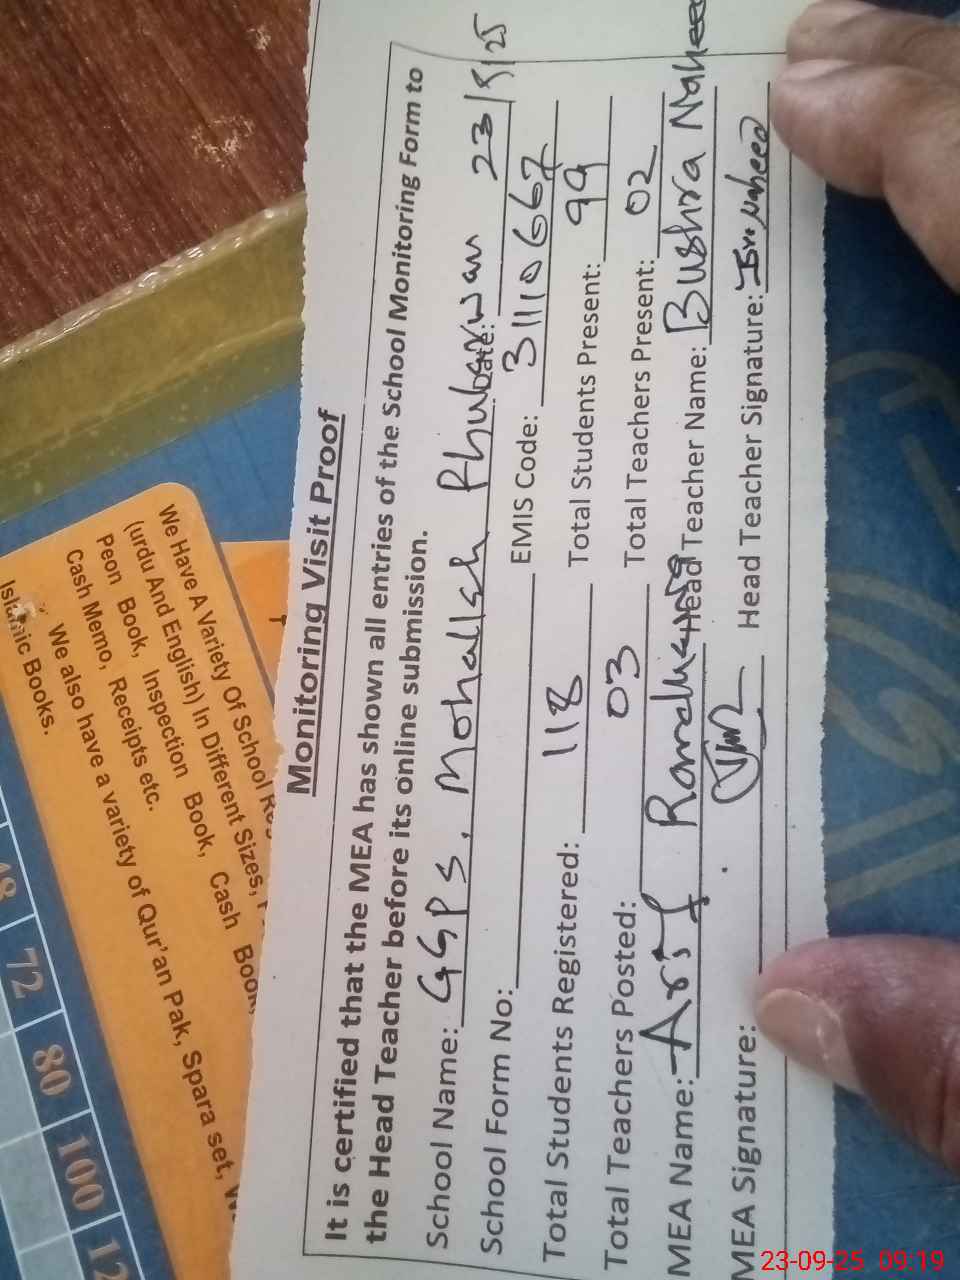 Monitoring Visit Proof
It is certified that the MEA has shown all entries of the School Monitoring Form to
the Head Teacher before its online submission.
School Name: GGPS, Mohallah Phubarwan Date: 23/9/25
School Form No: EMIS Code: 31110667
Total Students Registered: 118 Total Students Present: 99
Total Teachers Posted: 03 Total Teachers Present: 02
MEA Name: Arif Head Teacher Name: Bushra Naheed
MEA Signature: Head Teacher Signature: Naheed
We Have A Variety Of School
(urdu And English) In Different Sizes,
Peon Book, Inspection Book, Cash Book,
Cash Memo, Receipts etc.
We also have a variety of Qur'an Pak, Spara set,
Islamic Books.
48 72 80 100 12
23-09-25 09:19